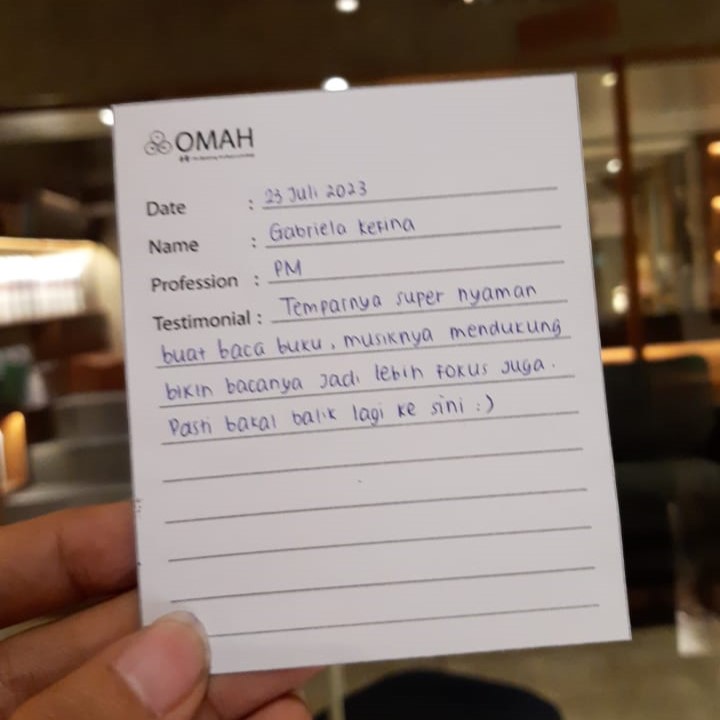 OMAH
Date : 23 Juli 2023
Name : Gabriela Kefina
Profession : PM
Testimonial : Tempatnya super nyaman
buat baca buku, musiknya mendukung
bikin bacanya jadi lebih fokus juga.
Pasti bakal balik lagi ke sini :)